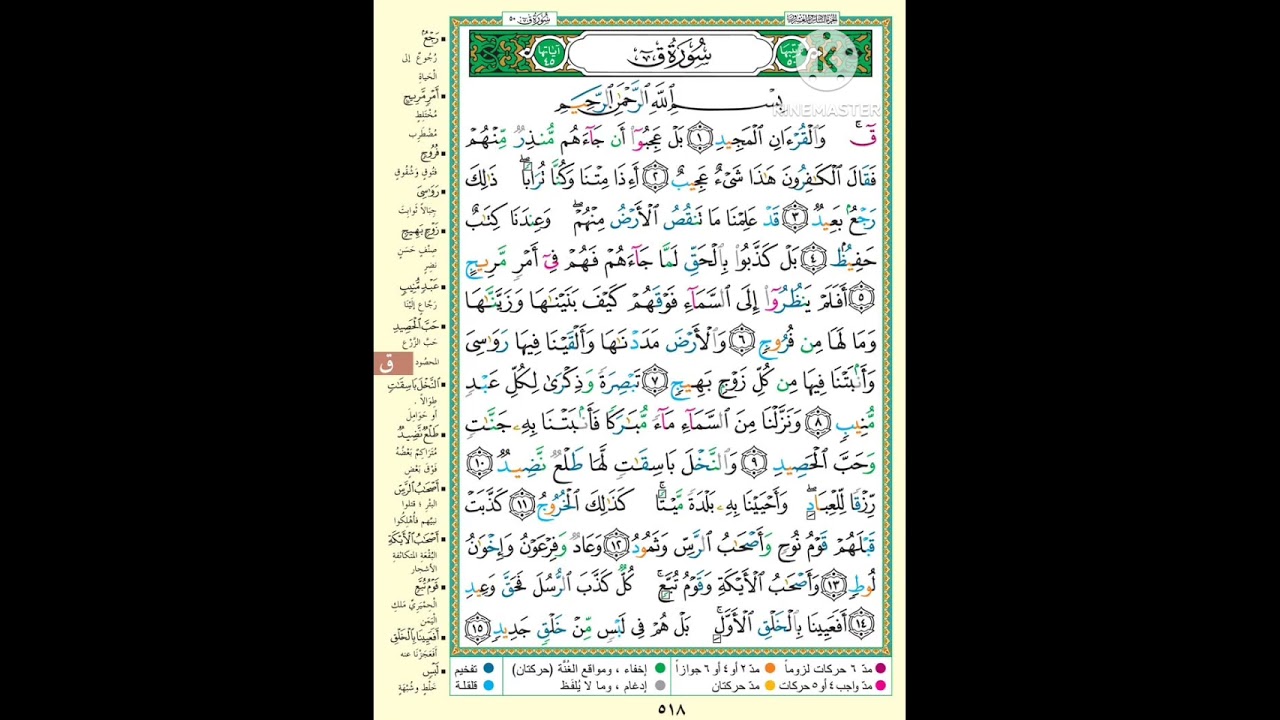 سُورَةُ ق ٥٠
سُورَةُ قٓ
آيَاتُهَا ٤٥
بِسْمِ ٱللَّهِ ٱلرَّحْمَٰنِ ٱلرَّحِيمِ
KINEMASTER
قٓ ۚ وَٱلْقُرْءَانِ ٱلْمَجِيدِ ١ بَلْ عَجِبُوٓا۟ أَن جَآءَهُم مُّنذِرٌ مِّنْهُمْ
فَقَالَ ٱلْكَٰفِرُونَ هَٰذَا شَىْءٌ عَجِيبٌ ٢ أَءِذَا مِتْنَا وَكُنَّا تُرَابًا ۖ ذَٰلِكَ
رَجْعٌۢ بَعِيدٌ ٣ قَدْ عَلِمْنَا مَا تَنقُصُ ٱلْأَرْضُ مِنْهُمْ ۖ وَعِندَنَا كِتَٰبٌ
حَفِيظٌۢ ٤ بَلْ كَذَّبُوا۟ بِٱلْحَقِّ لَمَّا جَآءَهُمْ فَهُمْ فِىٓ أَمْرٍ مَّرِيجٍ
٥ أَفَلَمْ يَنظُرُوٓا۟ إِلَى ٱلسَّمَآءِ فَوْقَهُمْ كَيْفَ بَنَيْنَٰهَا وَزَيَّنَّٰهَا
وَمَا لَهَا مِن فُرُوجٍ ٦ وَٱلْأَرْضَ مَدَدْنَٰهَا وَأَلْقَيْنَا فِيهَا رَوَٰسِىَ
وَأَنۢبَتْنَا فِيهَا مِن كُلِّ زَوْجٍۭ بَهِيجٍ ٧ تَبْصِرَةً وَذِكْرَىٰ لِكُلِّ عَبْدٍ
مُّنِيبٍ ٨ وَنَزَّلْنَا مِنَ ٱلسَّمَآءِ مَآءً مُّبَٰرَكًا فَأَنۢبَتْنَا بِهِۦ جَنَّٰتٍ
وَحَبَّ ٱلْحَصِيدِ ٩ وَٱلنَّخْلَ بَاسِقَٰتٍ لَّهَا طَلْعٌ نَّضِيدٌ ١٠
رِّزْقًا لِّلْعِبَادِ ۖ وَأَحْيَيْنَا بِهِۦ بَلْدَةً مَّيْتًا ۚ كَذَٰلِكَ ٱلْخُرُوجُ ١١ كَذَّبَتْ
قَبْلَهُمْ قَوْمُ نُوحٍ وَأَصْحَٰبُ ٱلرَّسِّ وَثَمُودُ ١٢ وَعَادٌ وَفِرْعَوْنُ وَإِخْوَٰنُ
لُوطٍ ١٣ وَأَصْحَٰبُ ٱلْأَيْكَةِ وَقَوْمُ تُبَّعٍ ۚ كُلٌّ كَذَّبَ ٱلرُّسُلَ فَحَقَّ وَعِيدِ
١٤ أَفَعَيِينَا بِٱلْخَلْقِ ٱلْأَوَّلِ ۚ بَلْ هُمْ فِى لَبْسٍ مِّنْ خَلْقٍ جَدِيدٍ ١٥
رَجْعٌ
رُجُوعٌ إلى
الحَيَاةِ
أَمْرٍ مَّرِيجٍ
مُخْتَلِطٍ
مُضْطَرِب
فُرُوجٍ
فُتُوقٍ وَشُقُوقٍ
رَوَٰسِىَ
جِبَالًا ثَوابِتَ
زَوْجٍ بَهِيجٍ
صِنْفٍ حَسَنٍ
نَضِرٍ
عَبْدٍ مُّنِيبٍ
رَجَّاعٍ إلَيْنَا
حَبَّ ٱلْحَصِيدِ
حَبَّ الزَّرْعِ
المحصُود
ق
ٱلنَّخْلَ بَاسِقَٰتٍ
طِوَالًا .
أو حَوَامِلَ
طَلْعٌ نَّضِيدٌ
مُتَرَاكِمٌ بَعْضُهُ
فَوْقَ بَعْضٍ
أَصْحَٰبُ ٱلرَّسِّ
البئرِ ؛ قتلوا
نبيَّهم فأُهْلِكُوا
أَصْحَٰبُ ٱلْأَيْكَةِ
البُقْعَة المتكاثفة
الأشجار
قَوْمُ تُبَّعٍ
الحِمْيَرِيِّ مَلِكِ
اليَمَنِ
أَفَعَيِينَا بِٱلْخَلْقِ
أَفَعَجَزْنَا عنه
لَبْسٍ
خَلْطٍ وشُبْهَةٍ
مدّ ٦ حركات لزوماً مدّ ٢ أو ٤ أو ٦ جوازاً إخفاء ، ومواقع الغُنَّة (حركتان) تفخيم
مدّ واجب ٤ أو ٥ حركات مدّ حركتان إدغام ، وما لا يُلفَظ قلقلة
٥١٨